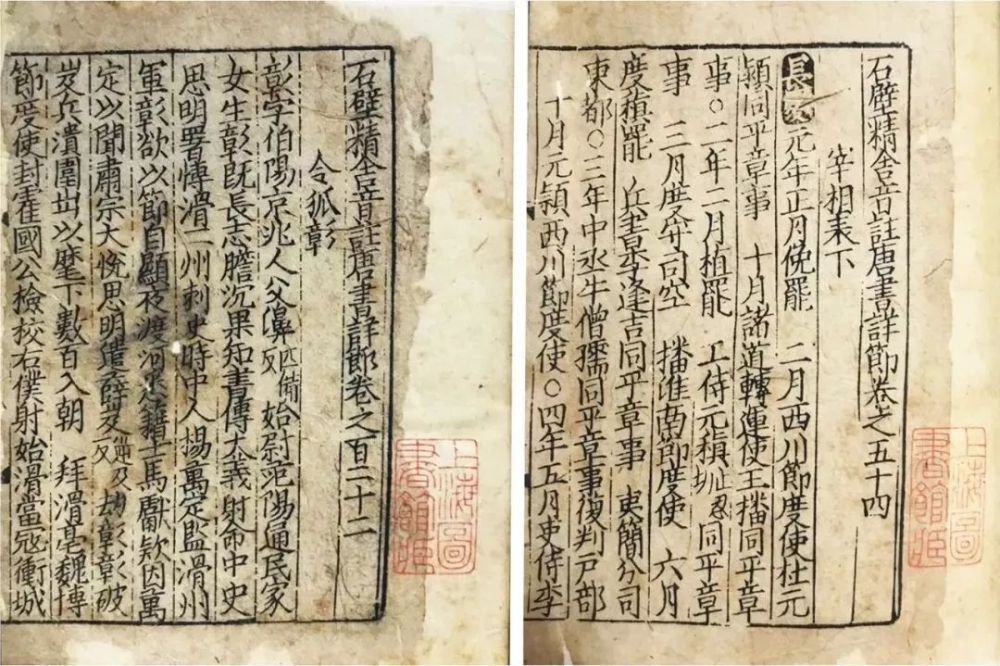 石壁精舍音註唐書詳節卷之五十四
宰相表下
長慶元年正月俛罷 二月西川節度使杜元
穎同平章事 十月諸道轉運使王播同平章
事○二年二月植罷 工侍元稹 忍 同平章
事 三月度守司空 播淮南節度使 六月
度稹罷 兵書李逢吉同平章事 吏簡分司
東都○三年中丞牛僧孺同平章事復判戸部
十月元穎西川節度使○四年五月吏侍李
上海圖書館藏
石壁精舍音註唐書詳節卷之百二十二
令狐彰
彰字伯陽京兆人父濞匹備反始尉范陽通民家
女生彰旣長志膽沉果知書傳大義射命中史
思明署博滑二州刺史時中人揚萬定監滑州
軍彰欲以節自顯夜渡河悉籍士馬獻款因萬
定以聞肅宗大悅思明遣薛岌 及反劫彰彰破
岌兵潰圍出以麾下數百入朝 拜滑亳魏博
節度使封霍國公檢校右僕射始滑當寇衝城
上海圖書館藏